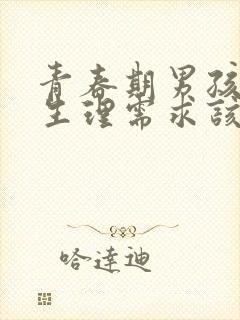 青春期男孩
生理需求该
哈達迪